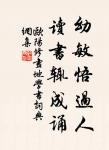 幼敏悟過人
讀書輒成誦
歐陽修畫地學書詞典
網集